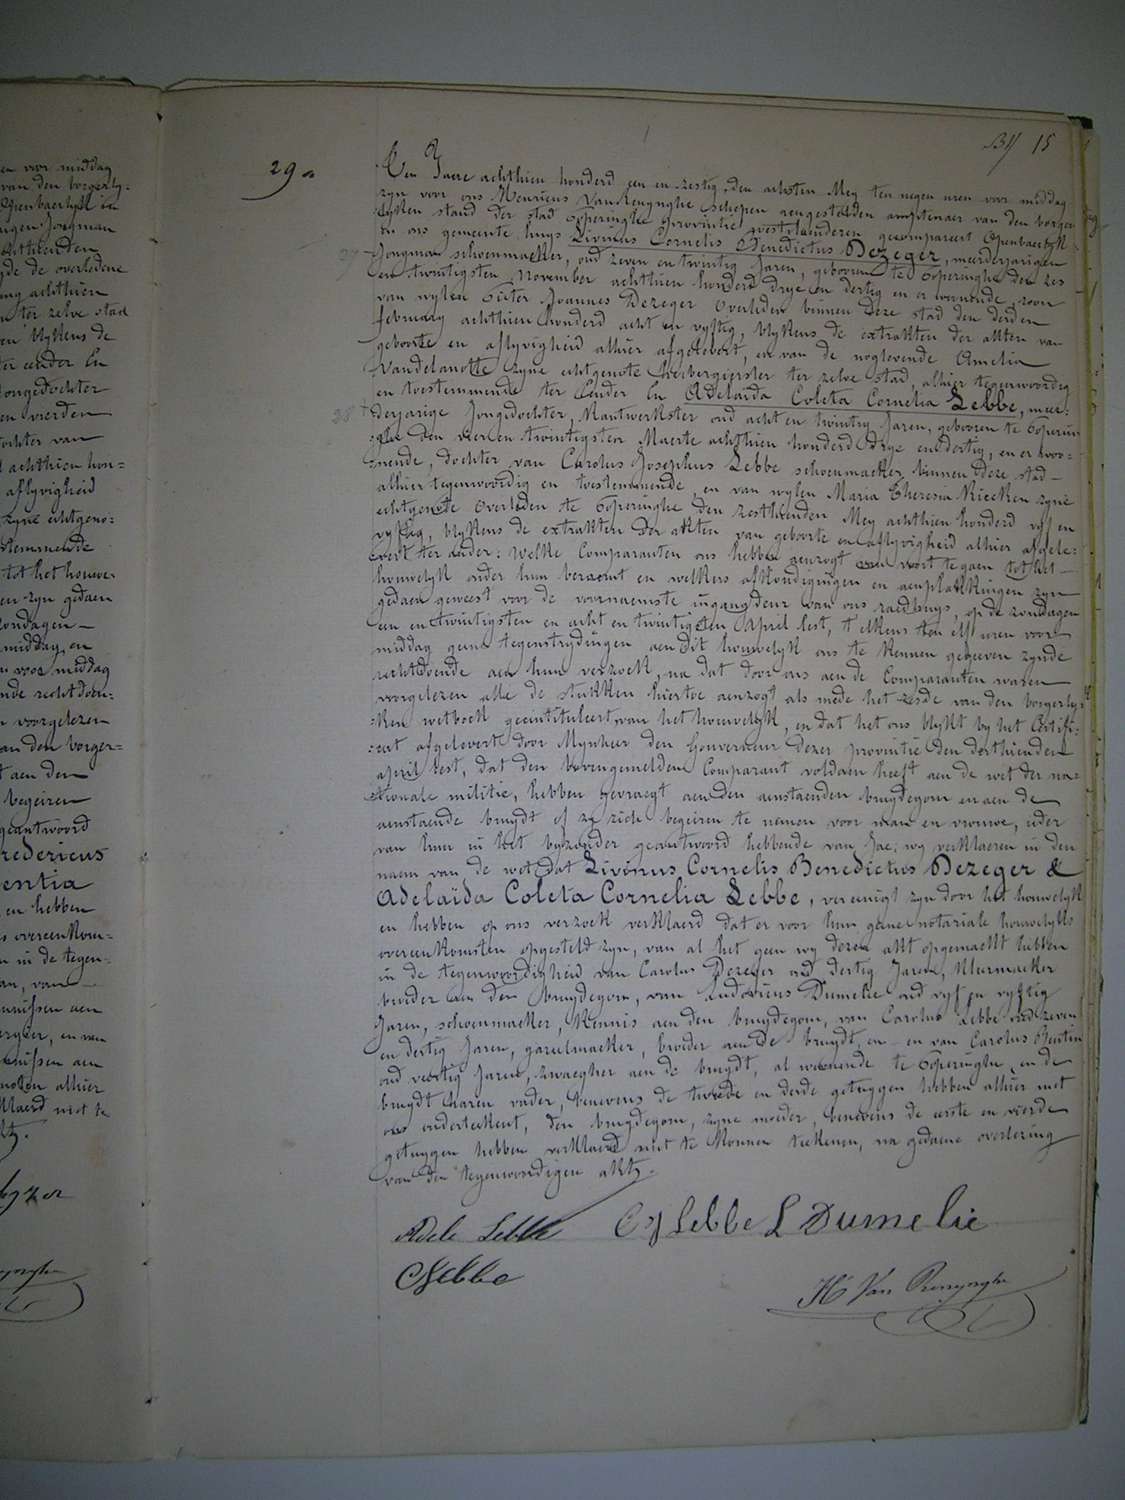 29
Bl 15
Den Jaere achthien honderd een en zestig, den achsten Mey ten negen uren voor middag
zyn voor ons Henricus Van Renynghe Schepen aengestelden amptenaer van den borger-
lyken stand der stad Poperinghe Provintie Westvlaenderen gecompareert Openbaerlyk
in ons gemeente huys Livinus Cornelis Benedictus Dezeger, meerderjarigen
Jongman schoenmaeker, oud zeven en twintig Jaren, geboren te Poperinghe den zes
en twintigsten November achthien honderd drye en dertig en er woonende, zoon
van wylen Pieter Joannes Dezeger Overleden binnen deze stad den derden
february achthien honderd acht en vyftig, blykens de extrakten der akten van
geboorte en aflyvigheid alhier afgelevert, en van de noglevende Amelia
Vandelanotte zyne echtgenote herbergierster ter zelve stad, alhier tegenwoordig
en toestemmende ter Eender En Adelaïda Coleta Cornelia Lebbe, meer-
derjarige Jongedochter, Kantwerkster oud acht en twintig Jaren, gebooren te Poperin-
ghe den vier en twintigsten Maerte achthien honderd drye en dertig, en er woo-
nende, dochter van Carolus Josephus Lebbe schoenmaeker binnen deze stad
alhier tegenwoordig en toestemmende, en van wylen Maria Theresia Riecken zyne
echtgenote Overleden te Poperinghe den zesthienden Mey achthien honderd vyf en
vyftig, blykens de extrakten der akten van geboorte en aflyvigheid alhier afgele-
vert ter ander: Welke Comparanten ons hebben aenzogt van voort te gaen tot het
houwelyk onder hun beraemt en welkers afkondigingen en aenplakkingen zyn
gedaen geweest voor de voornaemste ingangdeur van ons raedhuys, op de zondagen
een en twintigsten en acht en twintigsten April lest, telkens ten elf uren voor
middag geene tegenstrydingen aen dit houwelyk ons te kennen gegeeven zynde
rechtdoende aen hun verzoek, na dat door ons aen de Comparanten waren
voorgelezen alle de stukken hiertoe aenzogt als mede het zesde van den borgerly-
ken wetboek geintituleert van het houwelyk, en dat het ons blykt by het Certifi-
cat afgelevert door Mynheer den Gouverneur dezer provintie den derthienden
april lest, dat den bovengemelden Comparant voldaen heeft aen de wet der na-
tionale militie, hebben gevraegt aen den aenstaenden bruydegom en aen de
aenstaende bruydt of zy zich begeiren te nemen voor man en vrouwe, ider
van hun in het byzonder geantwoord hebbende van Jae; wy verklaeren in den
naem van de wet dat Livinus Cornelis Benedictus Dezeger &
Adelaïda Coleta Cornelia Lebbe, vereenigt zyn door het houwelyk
en hebben op ons verzoek verklaerd dat er voor hun geene notariale houwelyks
overeenkomsten opgesteld zyn, van al het geen wy dezen akt opgemaekt hebben
in de tegenwoordigheid van Carolus Dezeger oud dertig Jaren, kleermaeker
broeder aen den bruydegom, van Ludovicus Dumelie oud vyf en vyftig
Jaren, schoenmaeker, kennis aen den bruydegom, van Carolus Lebbe oud zeven
en dertig Jaren, gareelmaeker, broeder aen de bruydt, en van Carolus Bentin
oud veertig Jaren, zwaegher aen de bruydt, al woonende te Poperinghe, en de
bruydt haren vader, benevens de tweede en derde getuygen hebben alhier met
ons onderteekent, den bruydegom, zyne moeder, benevens de eerste en vierde
getuygen hebben verklaerd niet te konnen teekenen, na gedaene overlezing
van den tegenwoordigen akt.
Adele Lebbe C J Lebbe L Dumelie
C Lebbe
H Van Renynghe